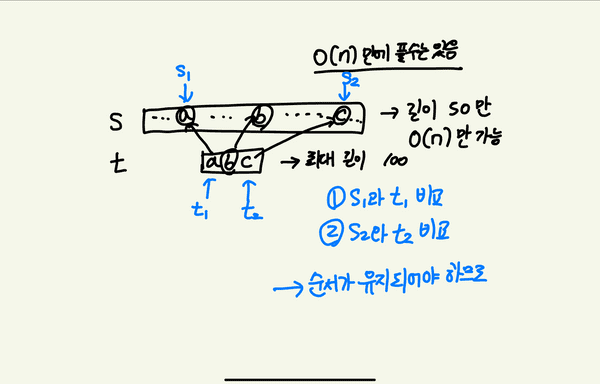 O(n) 만에 풀수는 있음
S₁
S₂
S
... a ... b ...... c ...
→ 길이 50만
O(n)만 가능
t
a b c
→ 최대 길이 100
t₁
t₂
① S₁과 t₁ 비교
② S₂와 t₂ 비교
→ 순서가 유지되어야 하므로